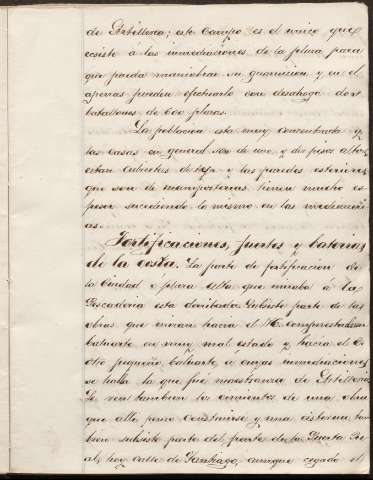 de Artilleria; este campo es el unico que
ecsiste á las inmediaciones de la plaza para
que pueda maniobrar su guarnicion y en el
apenas pueden efectuarlo con desahogo dos
batallones de 600 plazas.
La poblacion esta muy concentrada y
las casas en general son de uno y dos pisos altos
estan cubiertas de teja y las paredes esteriores
que son de mamposteria tienen mucho es
pesor sucediendo lo mismo en las medianerias
as.
Fortificaciones, fuertes y baterias
de la costa. La parte de fortificacion de
la Ciudad o plaza alta que miraba á la
Pescaderia esta derribada. Subsiste parte de las
obras que miran hacia el
baluarte en muy mal estado y hacia el
otro pequeño baluarte, á cuyas inmediaciones
se halla la que fué maestranza de Artilleria
Se ven tambien los cimientos de una obra
que alli penso construirse y una cisterna tam
bien subsiste parte del parte de la Puerta Re
al, hoy calle de Santiago, aunque cegado el